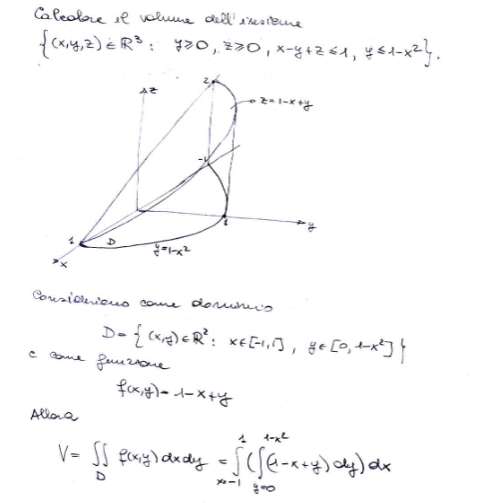 Calcolare il volume dell'insieme
{(x,y,z) ∈ ℝ³ : y≥0, z≥0, x-y+z≤1, y≤1-x²}.
z
2
z=1-x+y
-1
1
y
1
D
y=1-x²
x
Consideriamo come dominio
D={(x,y)∈ℝ² : x∈[-1,1], y∈[0,1-x²]}
e come funzione
f(x,y)=1-x+y
Allora
V= ∬_D f(x,y) dxdy = ∫_{x=-1}^{1} (∫_{y=0}^{1-x²} (1-x+y) dy) dx